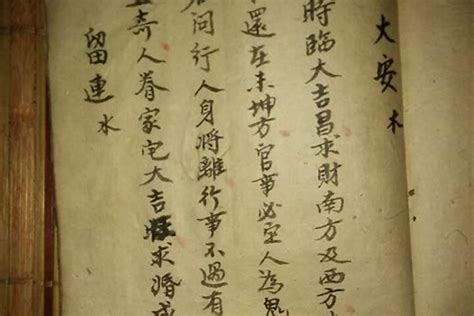 大安木
時臨大吉昌求財南方及西方
還在未坤方官事必宜人為鬼
問行人身將離行事不過有
奇人眷家宅大吉旺求婚成
留連水